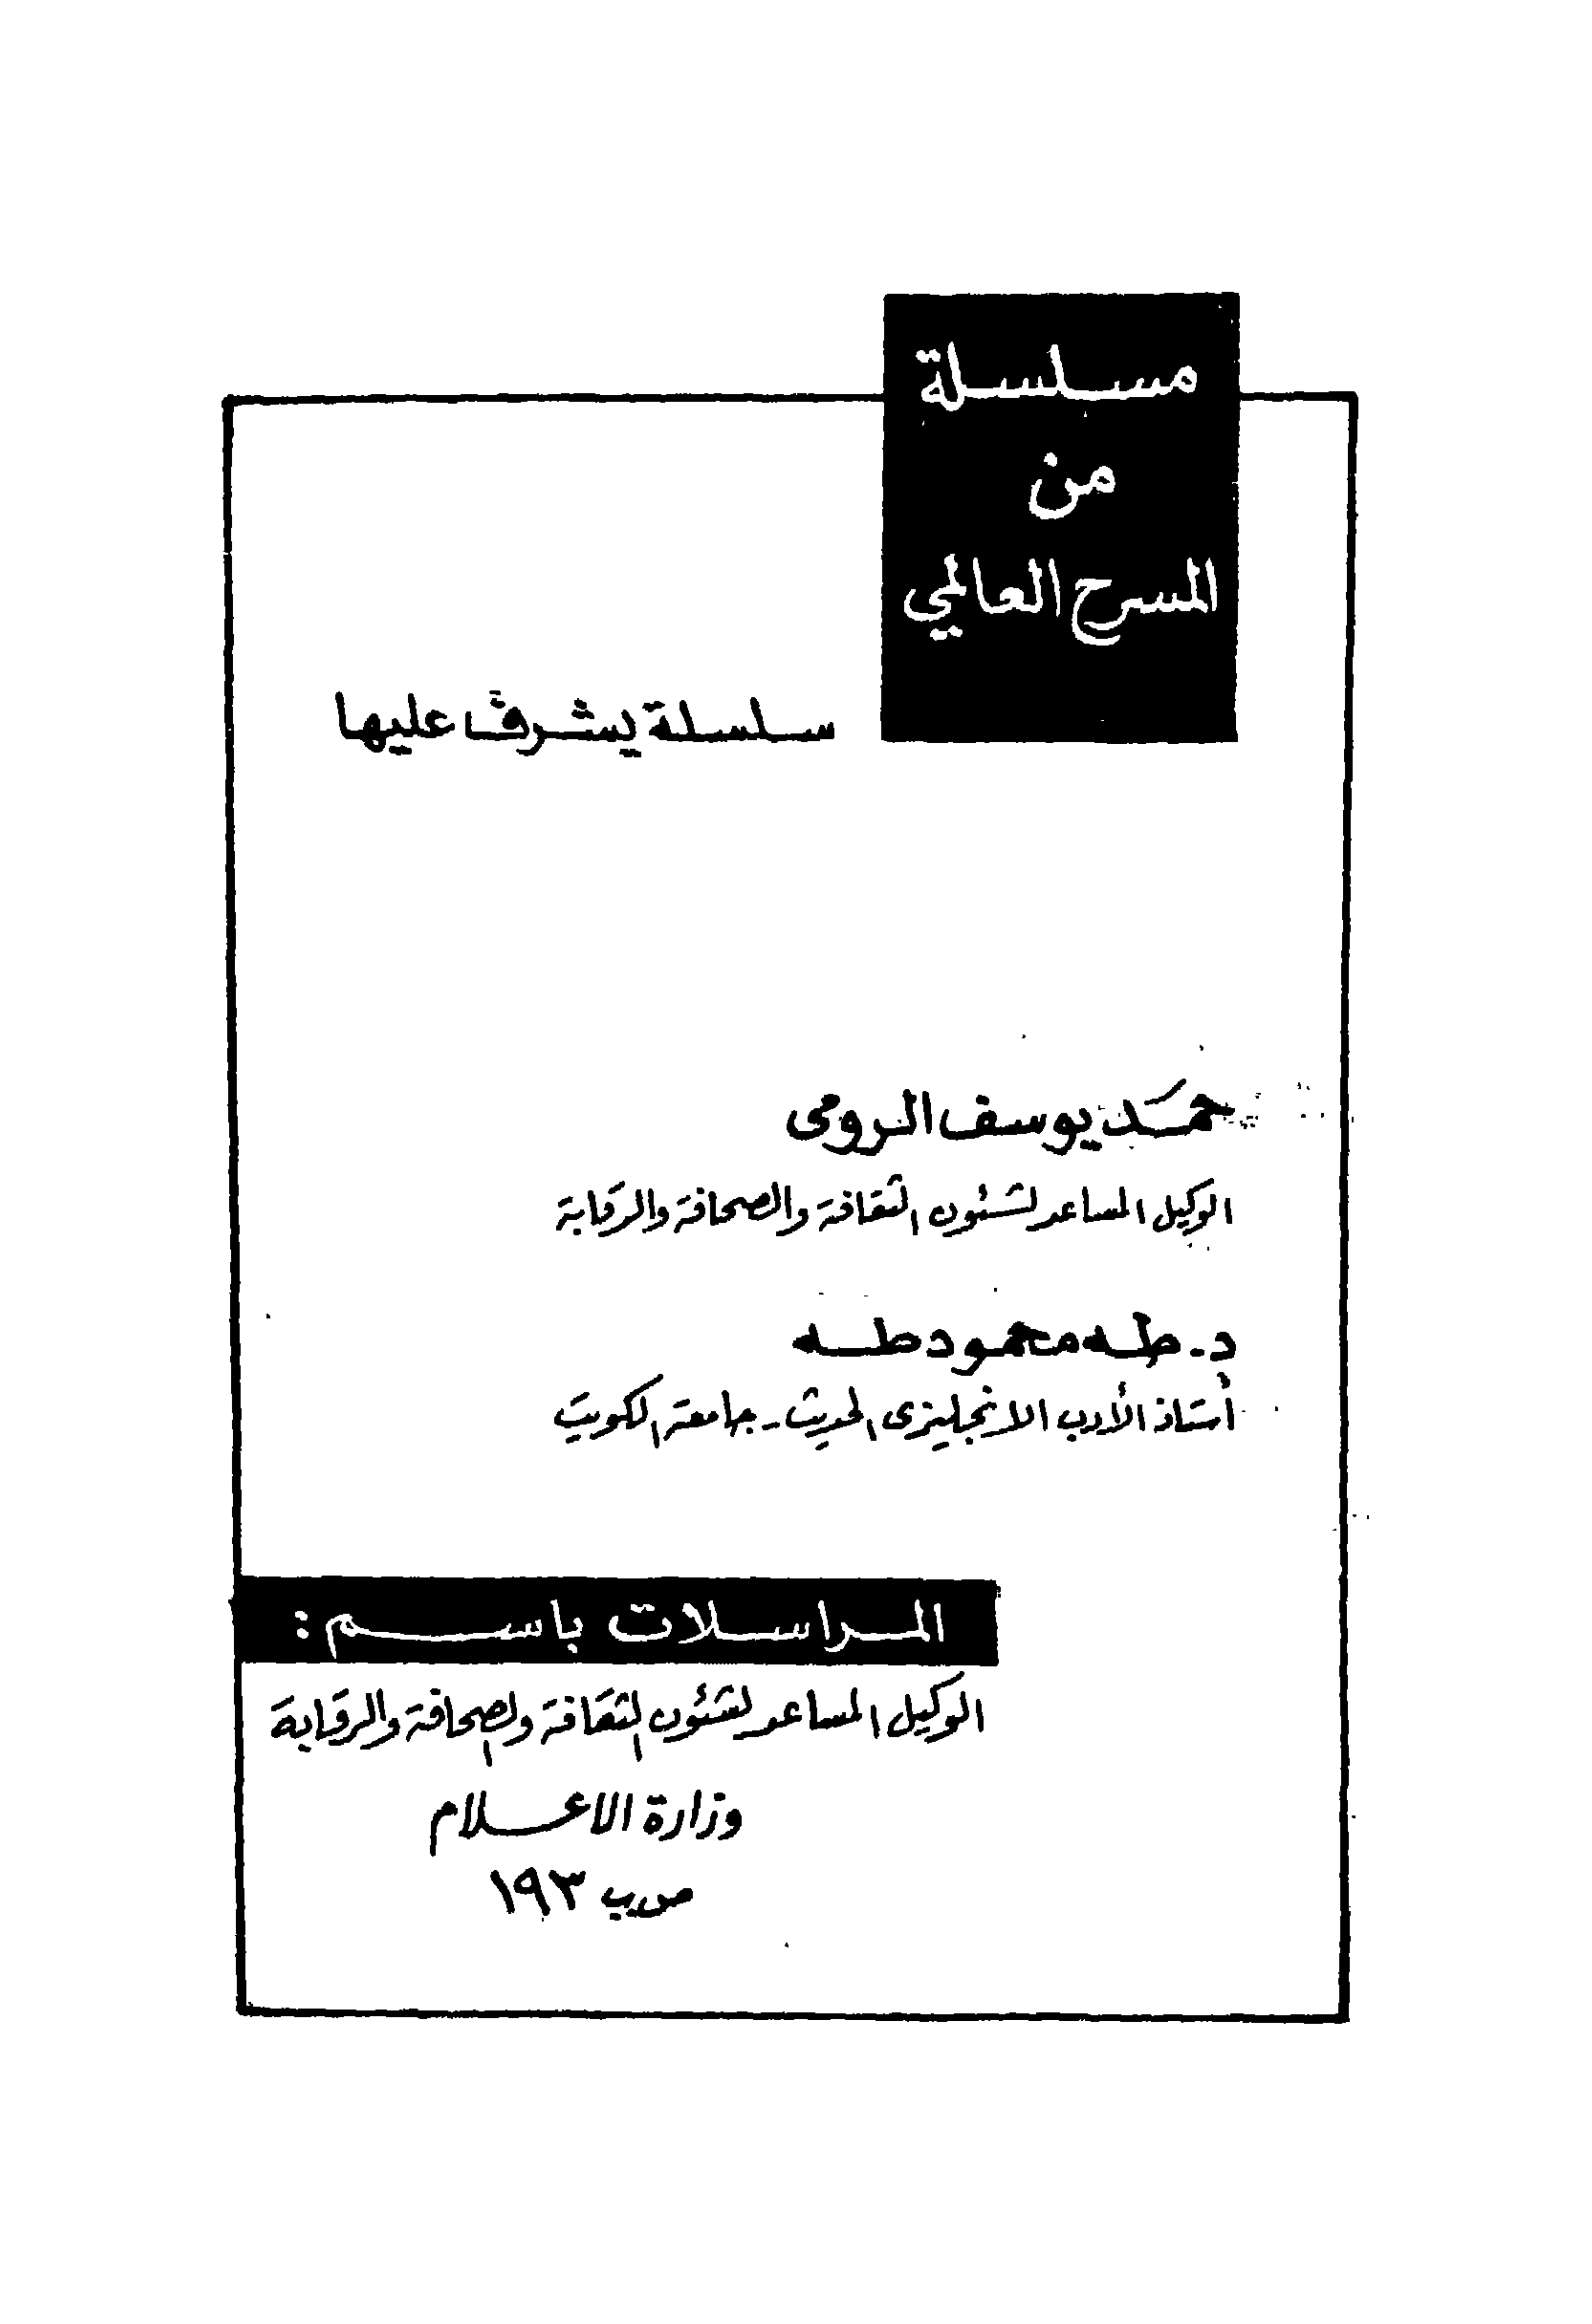 مسلسلة
من
المسرح العالمي
سلسلة يشرف عليها
حمَد يوسف الرومى
الوكيل المساعد لشئون الثقافة والصحافة والرقابة
د. طه محمود طه
أستاذ الأدب الانجليزى الحديث - جامعة الكويت
المراسلات باسم :
الوكيل المساعد لشئون الثقافة والصحافة والرقابة
وزارة الاعلام
ص.ب ١٩٣